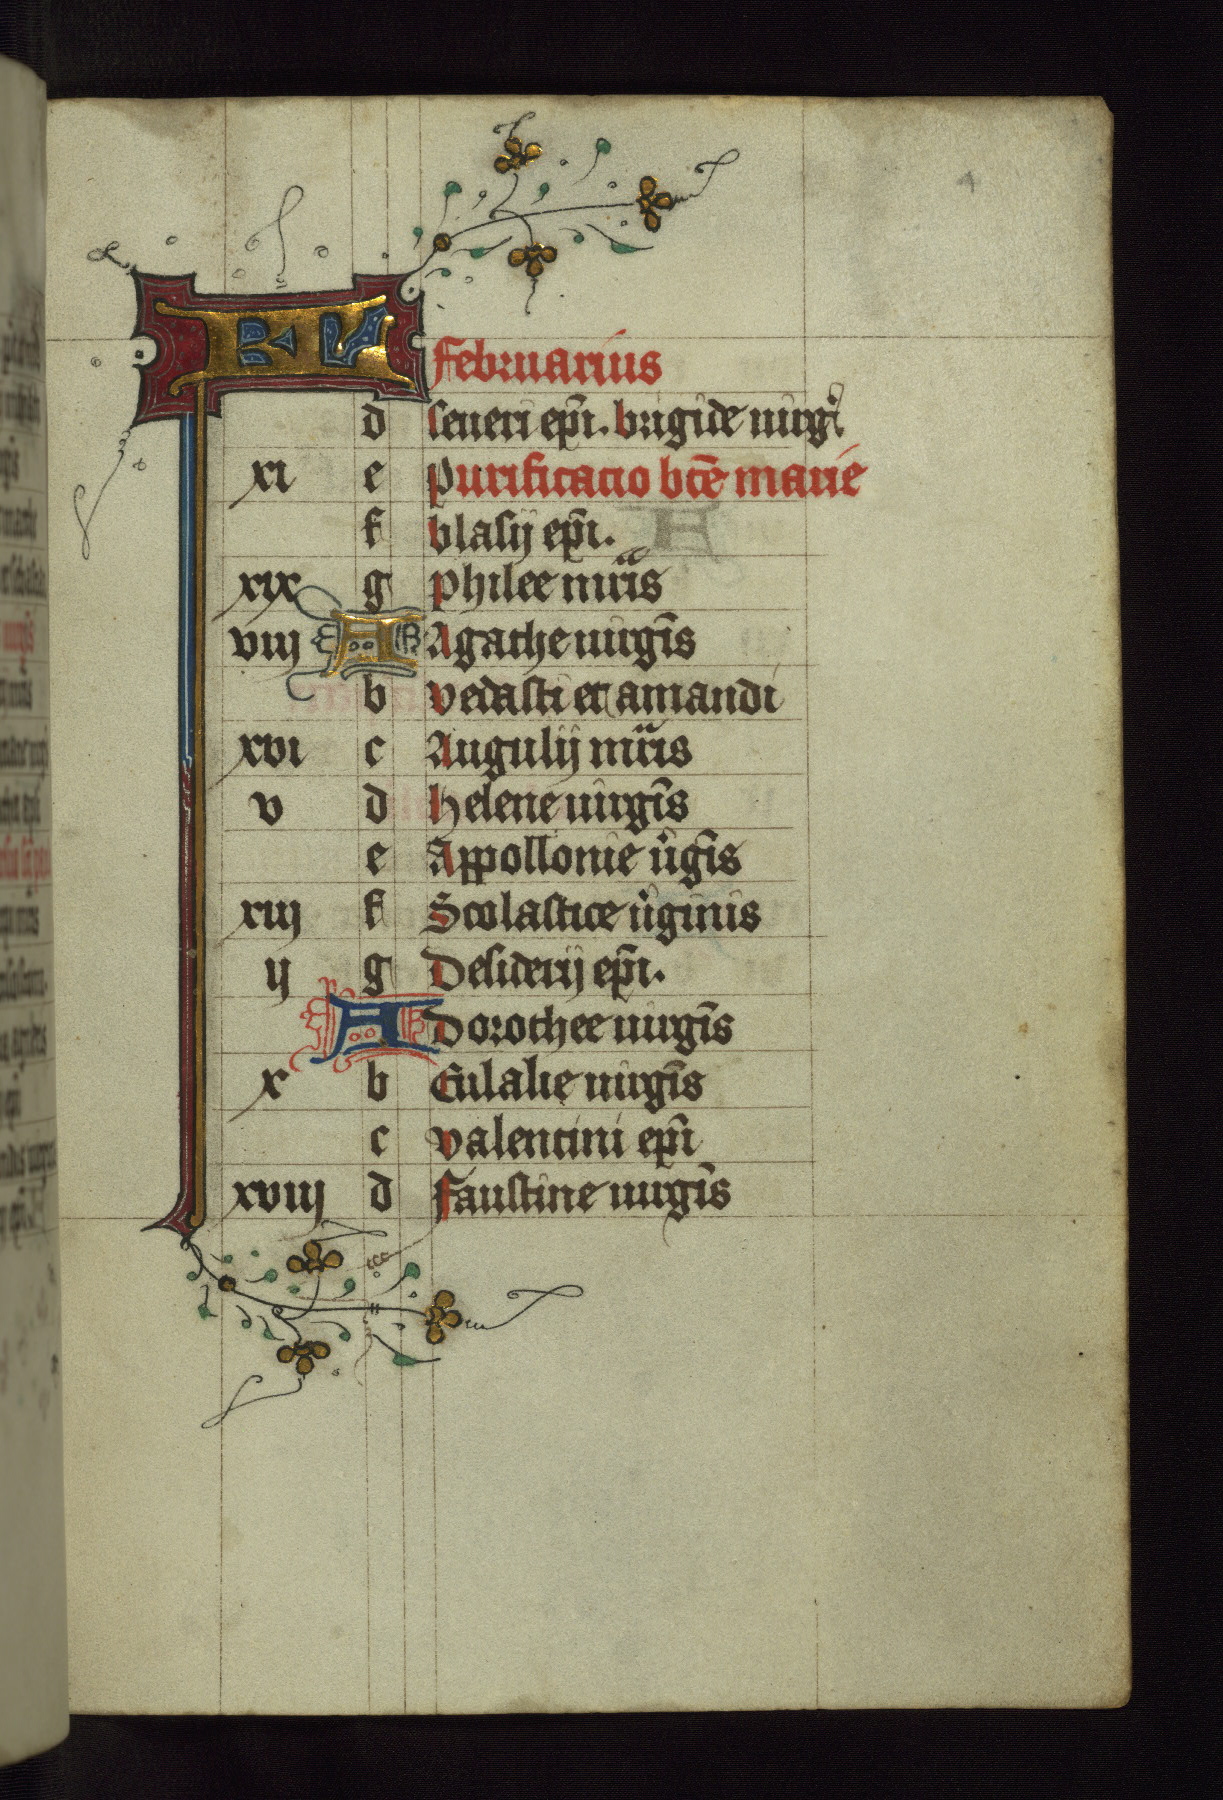 KL
Februarius
d seueri ep̄i. brigide uirgī
xi e purificatio btē marie
f blasij ep̄i.
xix g philee mr̄is
viij A Agathe uirgīs
b vedasti et amandi
xvi c Augulij mr̄is
v d helene uirgīs
e Appollonie u̇gīs
xiij f Scolastice u̇ginis
ij g Desiderij ep̄i.
A Dorothee uirgīs
x b Eulalie uirgīs
c valentini ep̄i
xviij d faustine uirgīs